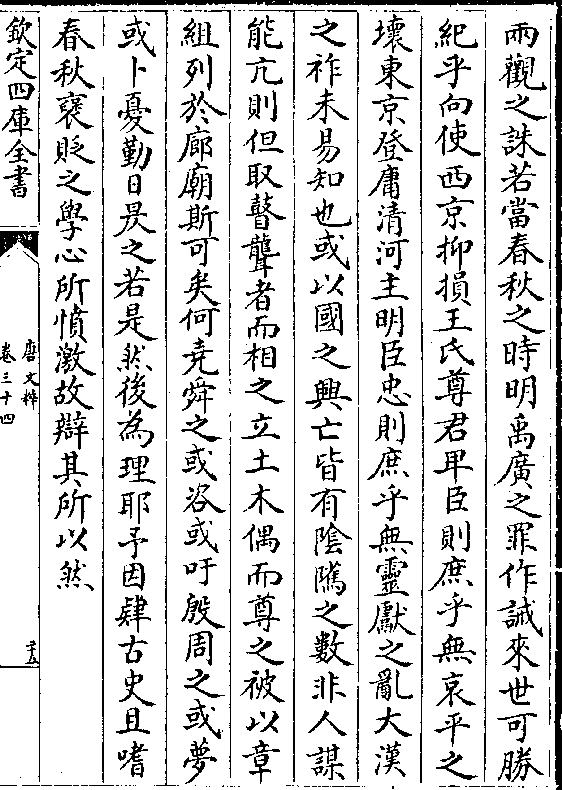 兩觀之誅若當春秋之時明禹廣之罪作誡來世可勝
紀乎向使西京抑損王氏尊君卑臣則庶乎無哀平之
壞東京登庸清河主明臣忠則庶乎無靈獻之亂大漢
之祚未易知也或以國之興亡皆有陰隲之數非人謀
能亢則但取瞽聾者而相之立土木偶而尊之被以章
組列於廊廟斯可矣何堯舜之或咨或吁殷周之或夢
或卜憂勤日昃之若是然後為理耶予因肄古史且嗜
春秋褒貶之學心所憤激故辯其所以然
欽定四庫全書
唐文粹
卷三十四
三五